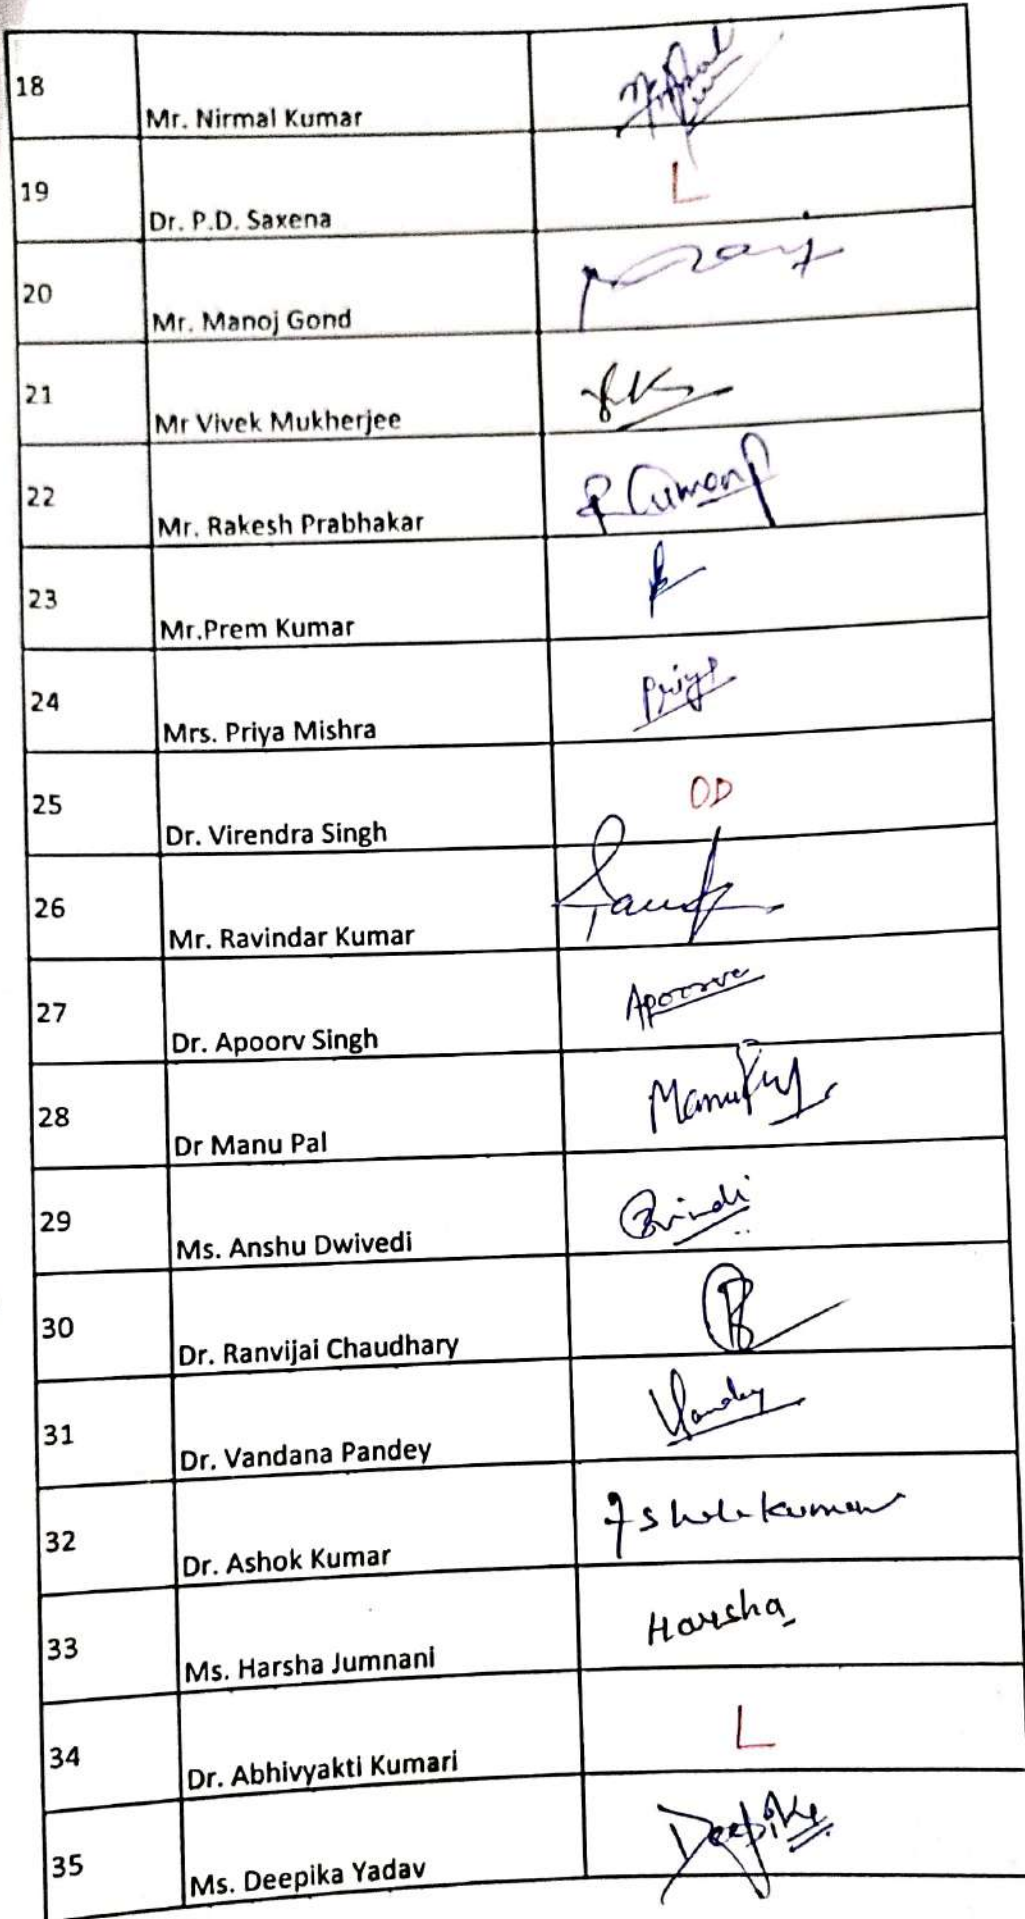 18 Mr. Nirmal Kumar
19 Dr. P.D. Saxena L
20 Mr. Manoj Gond
21 Mr Vivek Mukherjee
22 Mr. Rakesh Prabhakar
23 Mr.Prem Kumar
24 Mrs. Priya Mishra Priya
25 Dr. Virendra Singh OD
26 Mr. Ravindar Kumar
27 Dr. Apoorv Singh Apoorva
28 Dr Manu Pal Manu
29 Ms. Anshu Dwivedi
30 Dr. Ranvijai Chaudhary
31 Dr. Vandana Pandey
32 Dr. Ashok Kumar
33 Ms. Harsha Jumnani Harsha
34 Dr. Abhivyakti Kumari L
35 Ms. Deepika Yadav Deepika